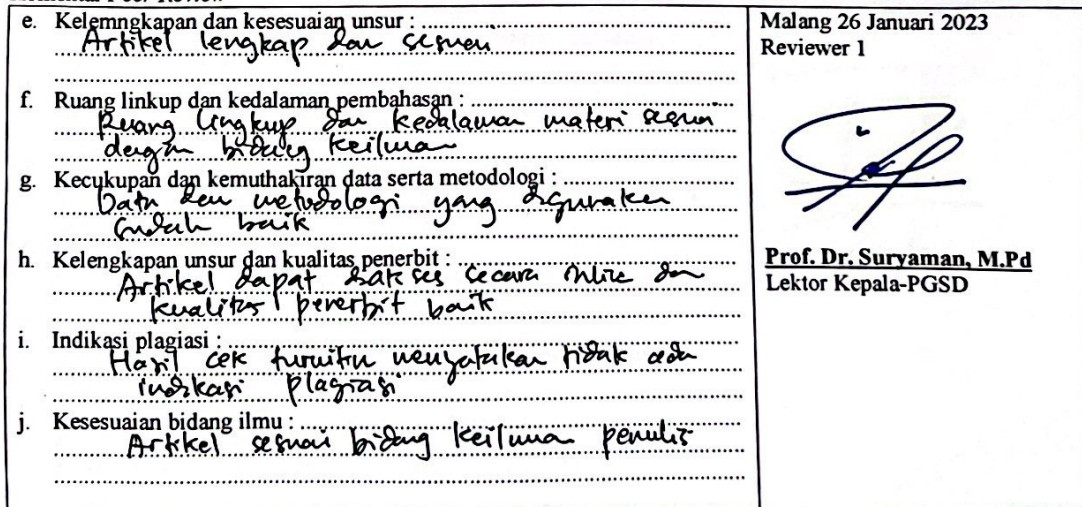 e. Kelemngkapan dan kesesuaian unsur :
Artikel lengkap dan sesuai
f. Ruang linkup dan kedalaman pembahasan :
Ruang lingkup dan kedalaman materi sesuai
dengan bidang keilmuan
g. Kecukupan dan kemuthakiran data serta metodologi :
Data dan metodologi yang digunakan
sudah baik
h. Kelengkapan unsur dan kualitas penerbit :
Artikel dapat diakses secara online dan
kualitas penerbit baik
i. Indikasi plagiasi :
Hasil cek turnitin menyatakan tidak ada
indikasi plagiasi
j. Kesesuaian bidang ilmu :
Artikel sesuai bidang keilmuan penulis
Malang 26 Januari 2023
Reviewer 1
Prof. Dr. Suryaman, M.Pd
Lektor Kepala-PGSD